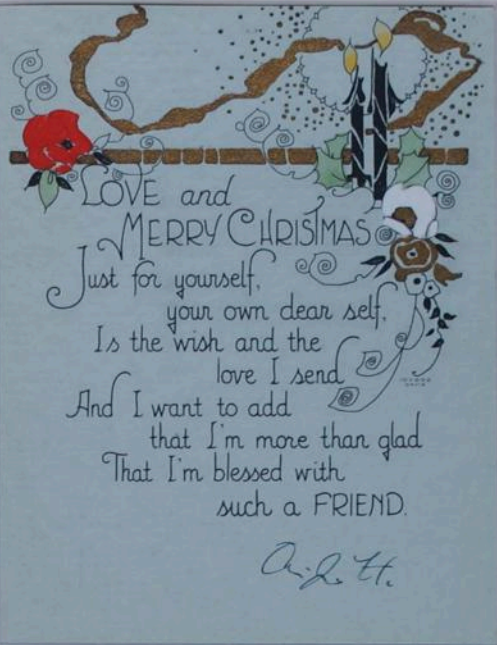 LOVE and
MERRY CHRISTMAS
Just for yourself,
your own dear self,
Is the wish and the
love I send
And I want to add
that I'm more than glad
That I'm blessed with
such a FRIEND.